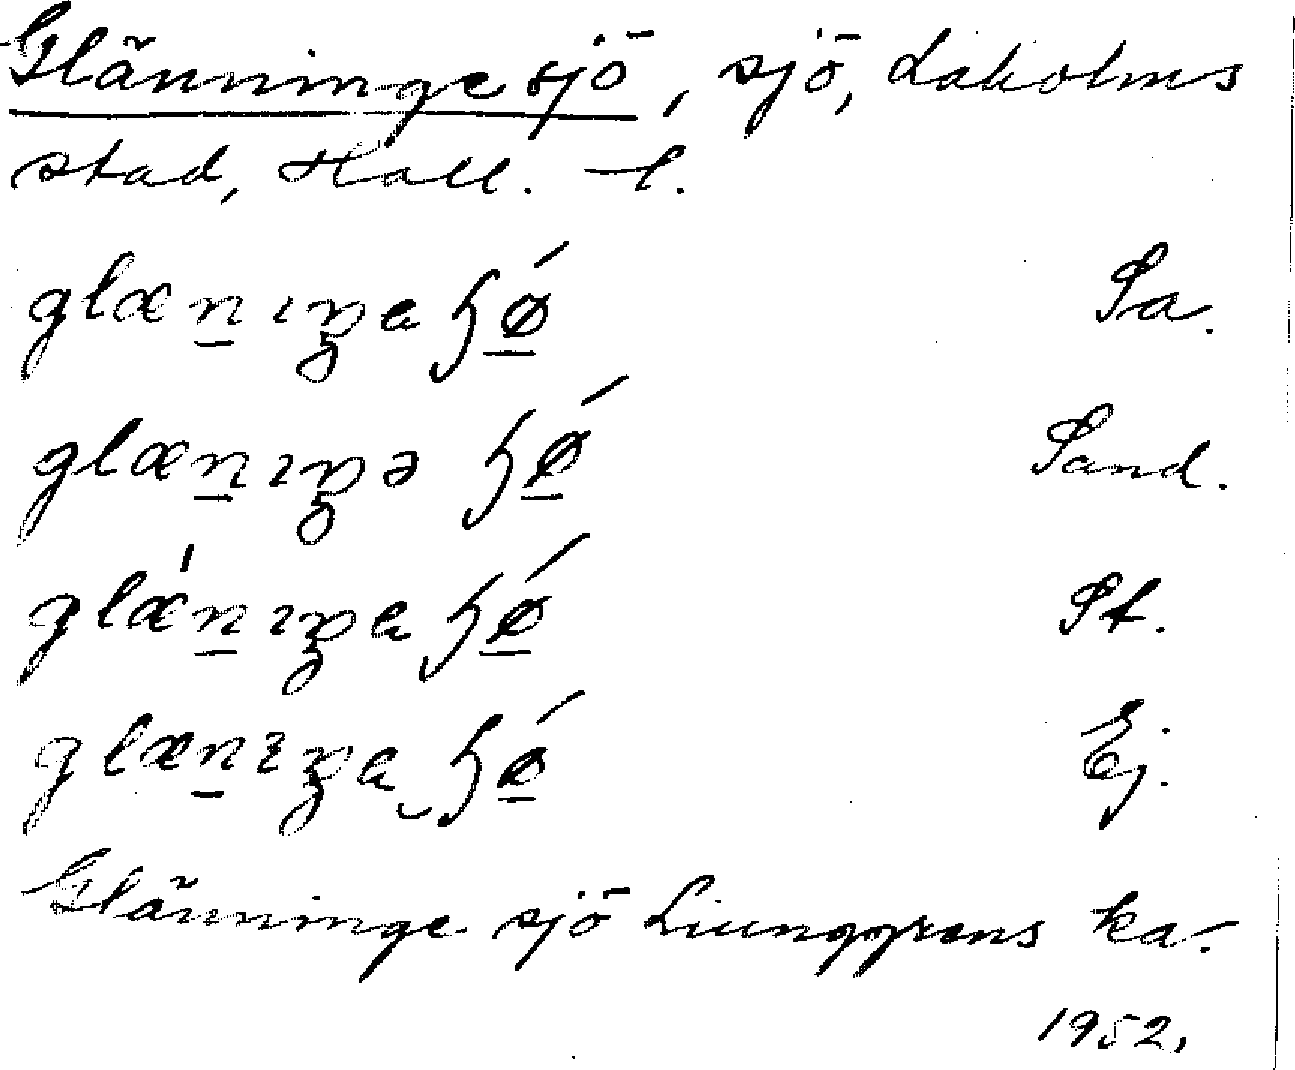 Glänninge sjö, sjö, Laholms
stad, Hall. l.
glænıŋa ɧǿ Sa.
glænıŋə ɧǿ Sand.
glǽnıŋa ɧǿ St.
glænıŋa ɧǿ Ej.
Glänninge sjö Liunggrens ka.
1952.